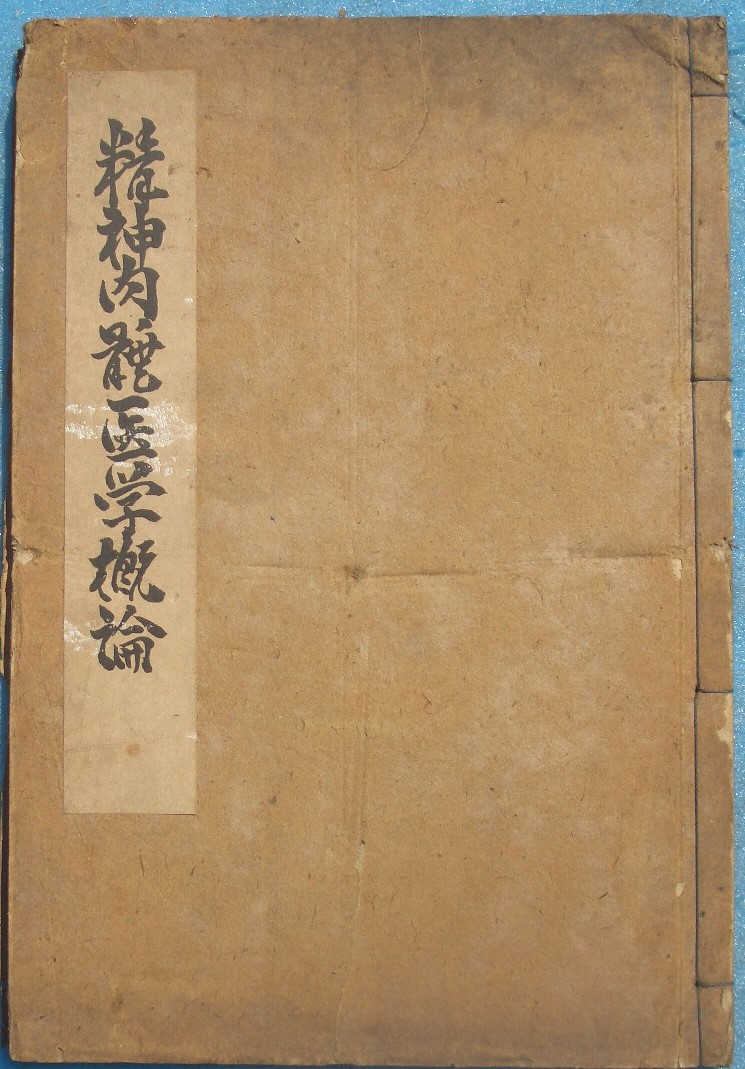 精神肉體医学概論